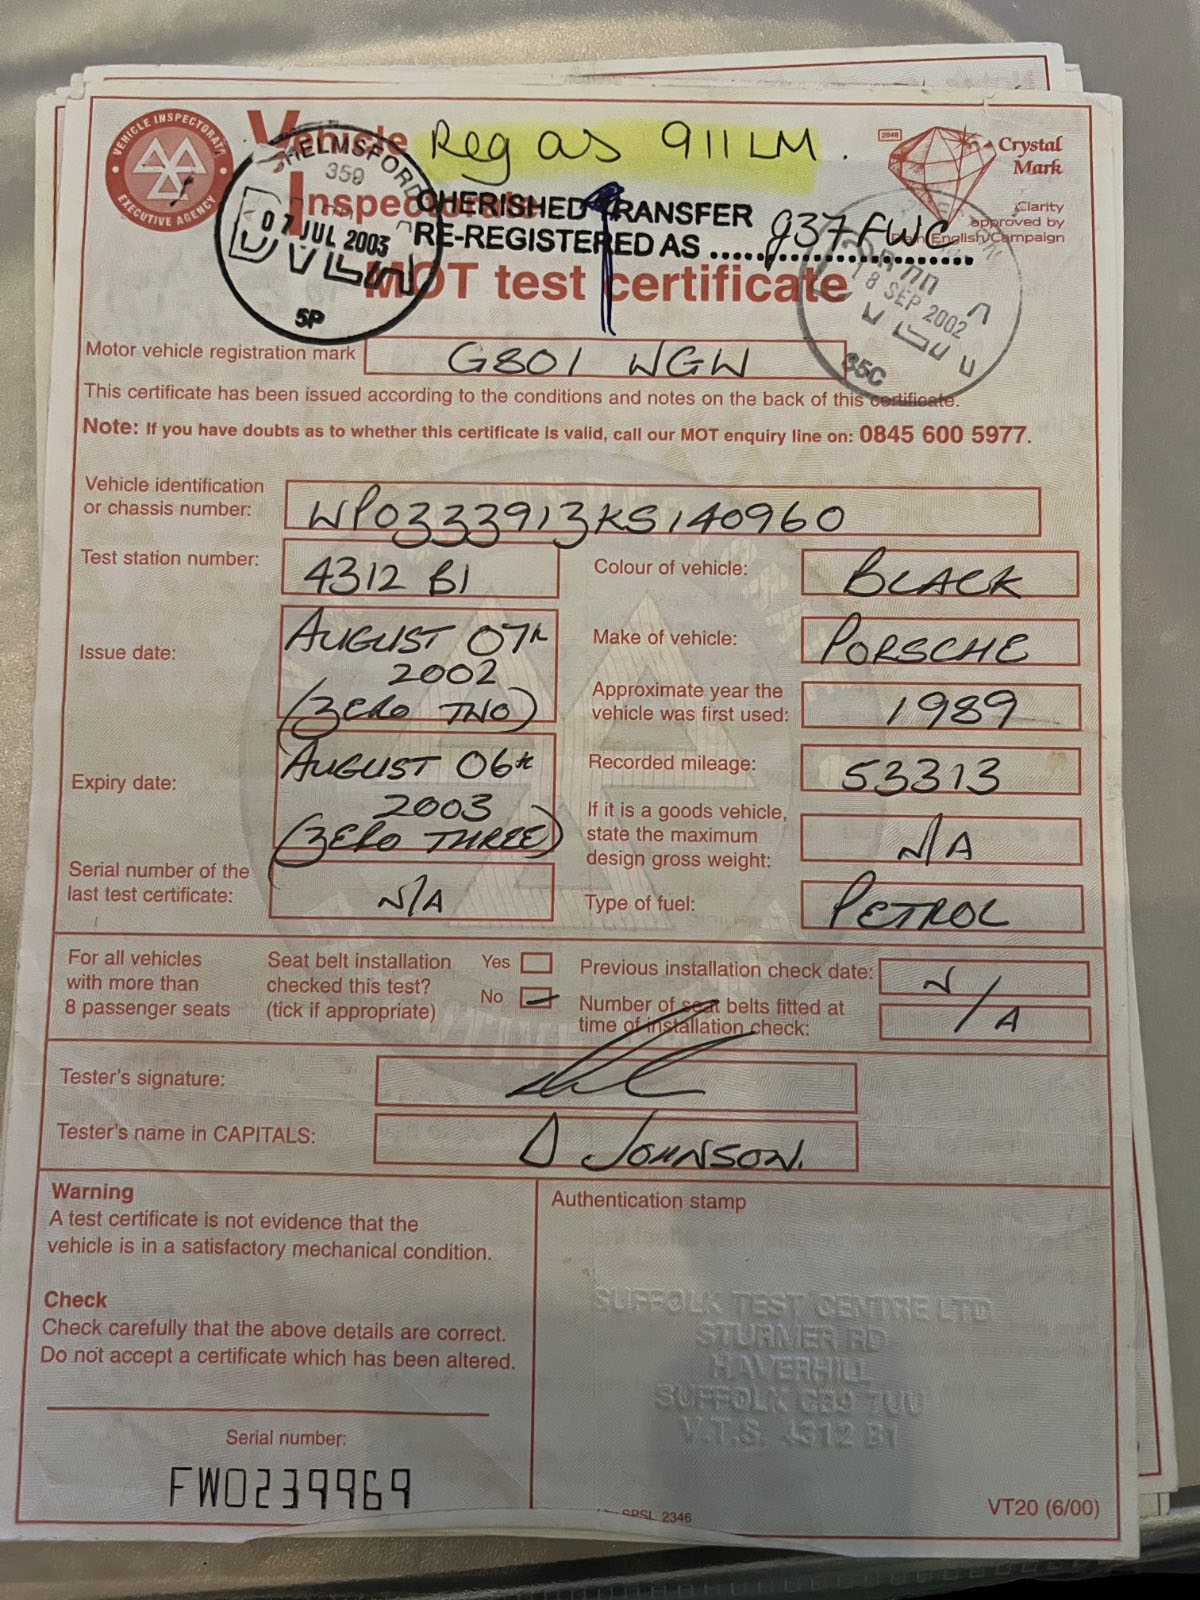 VEHICLE INSPECTORATE
EXECUTIVE AGENCY
Vehicle
Inspectorate
Reg as 911 LM.
Crystal
Mark
Clarity
approved by
Plain English Campaign
CHELMSFORD
359
07 JUL 2003
DVLA
SP
CHERISHED TRANSFER
RE-REGISTERED AS ........ g37 FWC
18 SEP 2002
35C
MOT test certificate
Motor vehicle registration mark G801 WGW
This certificate has been issued according to the conditions and notes on the back of this certificate.
Note: If you have doubts as to whether this certificate is valid, call our MOT enquiry line on: 0845 600 5977.
Vehicle identification
or chassis number: WP0333913KS140960
Test station number: 4312 B1
Colour of vehicle: BLACK
Issue date: AUGUST 07th
2002
(ZERO TWO)
Make of vehicle: PORSCHE
Approximate year the
vehicle was first used: 1989
Expiry date: AUGUST 06th
2003
(ZERO THREE)
Recorded mileage: 53313
If it is a goods vehicle,
state the maximum
design gross weight: N/A
Serial number of the
last test certificate: N/A
Type of fuel: PETROL
For all vehicles
with more than
8 passenger seats
Seat belt installation
checked this test?
(tick if appropriate)
Yes
No
Previous installation check date: N/A
Number of seat belts fitted at
time of installation check:
Tester's signature:
Tester's name in CAPITALS: D JOHNSON.
Warning
A test certificate is not evidence that the
vehicle is in a satisfactory mechanical condition.
Check
Check carefully that the above details are correct.
Do not accept a certificate which has been altered.
Serial number:
FW0239969
Authentication stamp
SUFFOLK TEST CENTRE LTD
STURMER RD
HAVERHILL
SUFFOLK CB9 7UU
V.T.S. 4312 B1
SPSL 2346
VT20 (6/00)